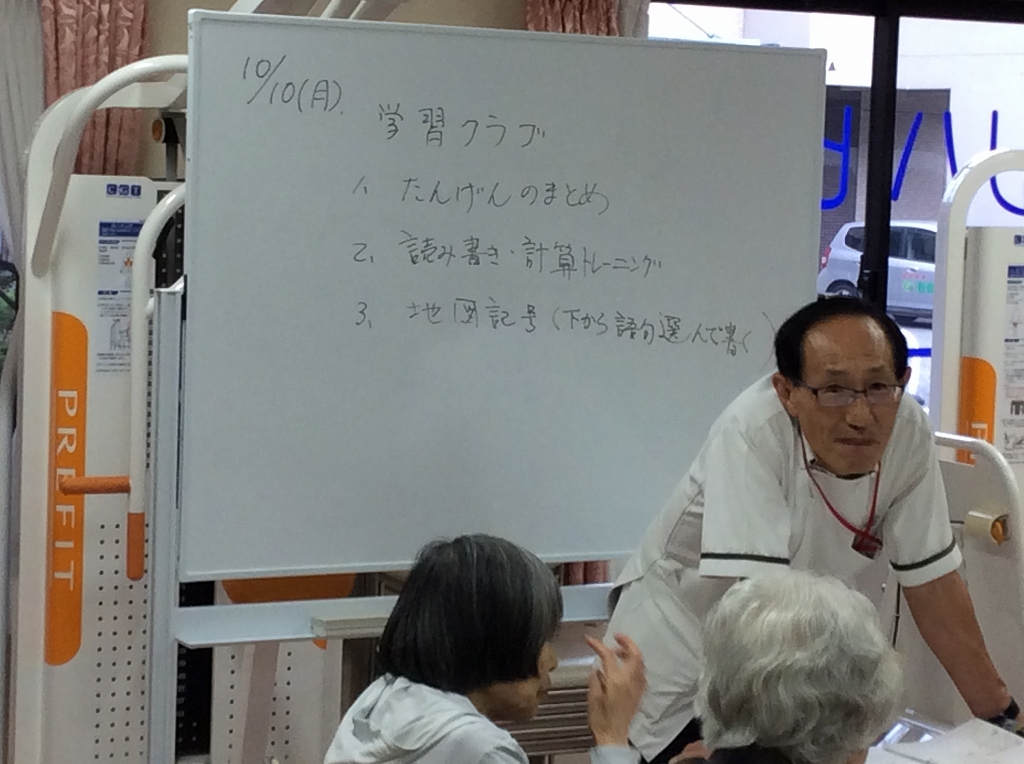 10/10(月).
学習クラブ
1、たんげんのまとめ
2、読み書き・計算トレーニング
3、地図記号(下から語句選んで書く)
CGT
PREFIT